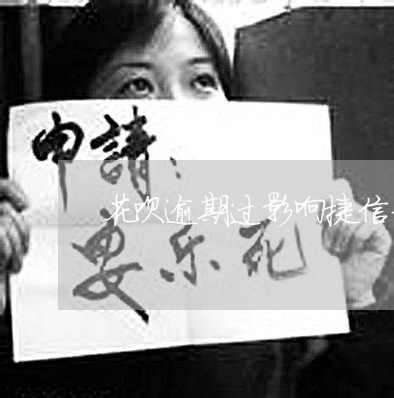 申請：
花呗逾期过影响捷信
安乐死